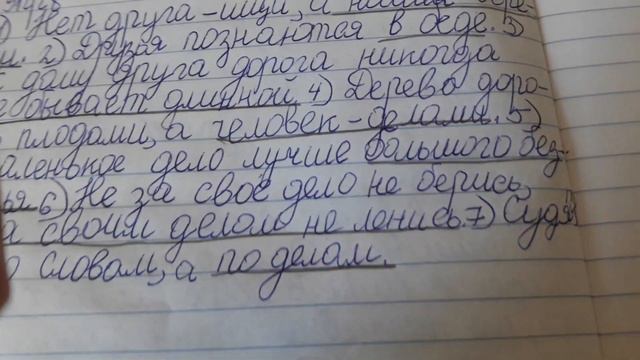 ) Нет друга - ищи, а нашёл бере-
и. 2) Друзья познаются в беде. 3)
К дому друга дорога никогда
е бывает длинной. 4) Дерево доро-
плодами, а человек - делами. 5)
аленькое дело лучше большого без-
лья 6) Не за своё дело не берись,
а своим делом не ленись. 7) Судят
о словам, а по делам.